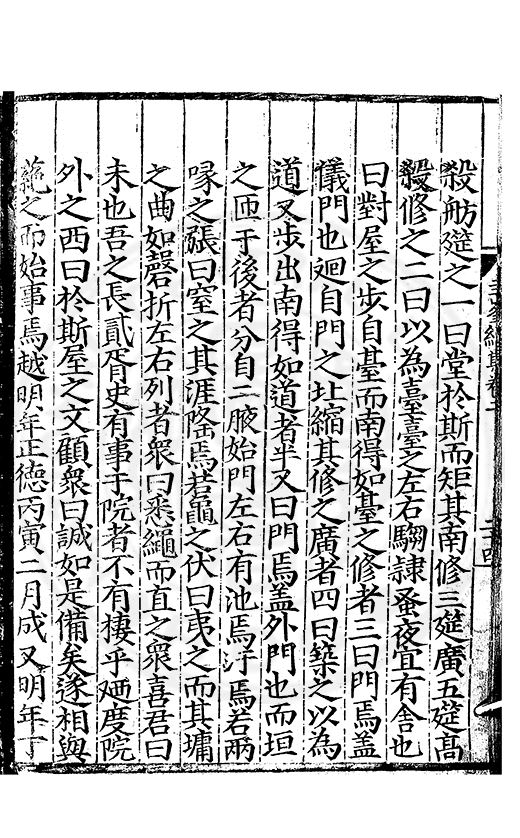 殺舫筵之一曰堂於斯而矩其南修三筵廣五筵髙
殺修之二曰以為臺臺之左右騶隷蚤夜宜有舍也
曰對屋之步自臺而南得如臺之修者三曰門焉盖
儀門也廻自門之址縮其修之廣者四曰築之以為
道又步出南得如道者半又曰門焉盖外門也而垣
之匝于後者分自二腋始門左右有池焉汙焉若兩
喙之張曰窒之其涯隆焉若黿之伏曰夷之而其墉
之曲如磬折左右列者衆曰悉繩而直之衆喜君曰
未也吾之長貳胥史有事于院者不有棲乎廼度院
外之西曰於斯屋之文顧衆曰誠如是備矣遂相與
蕝之而始事焉越明年正德丙寅二月成又明年丁